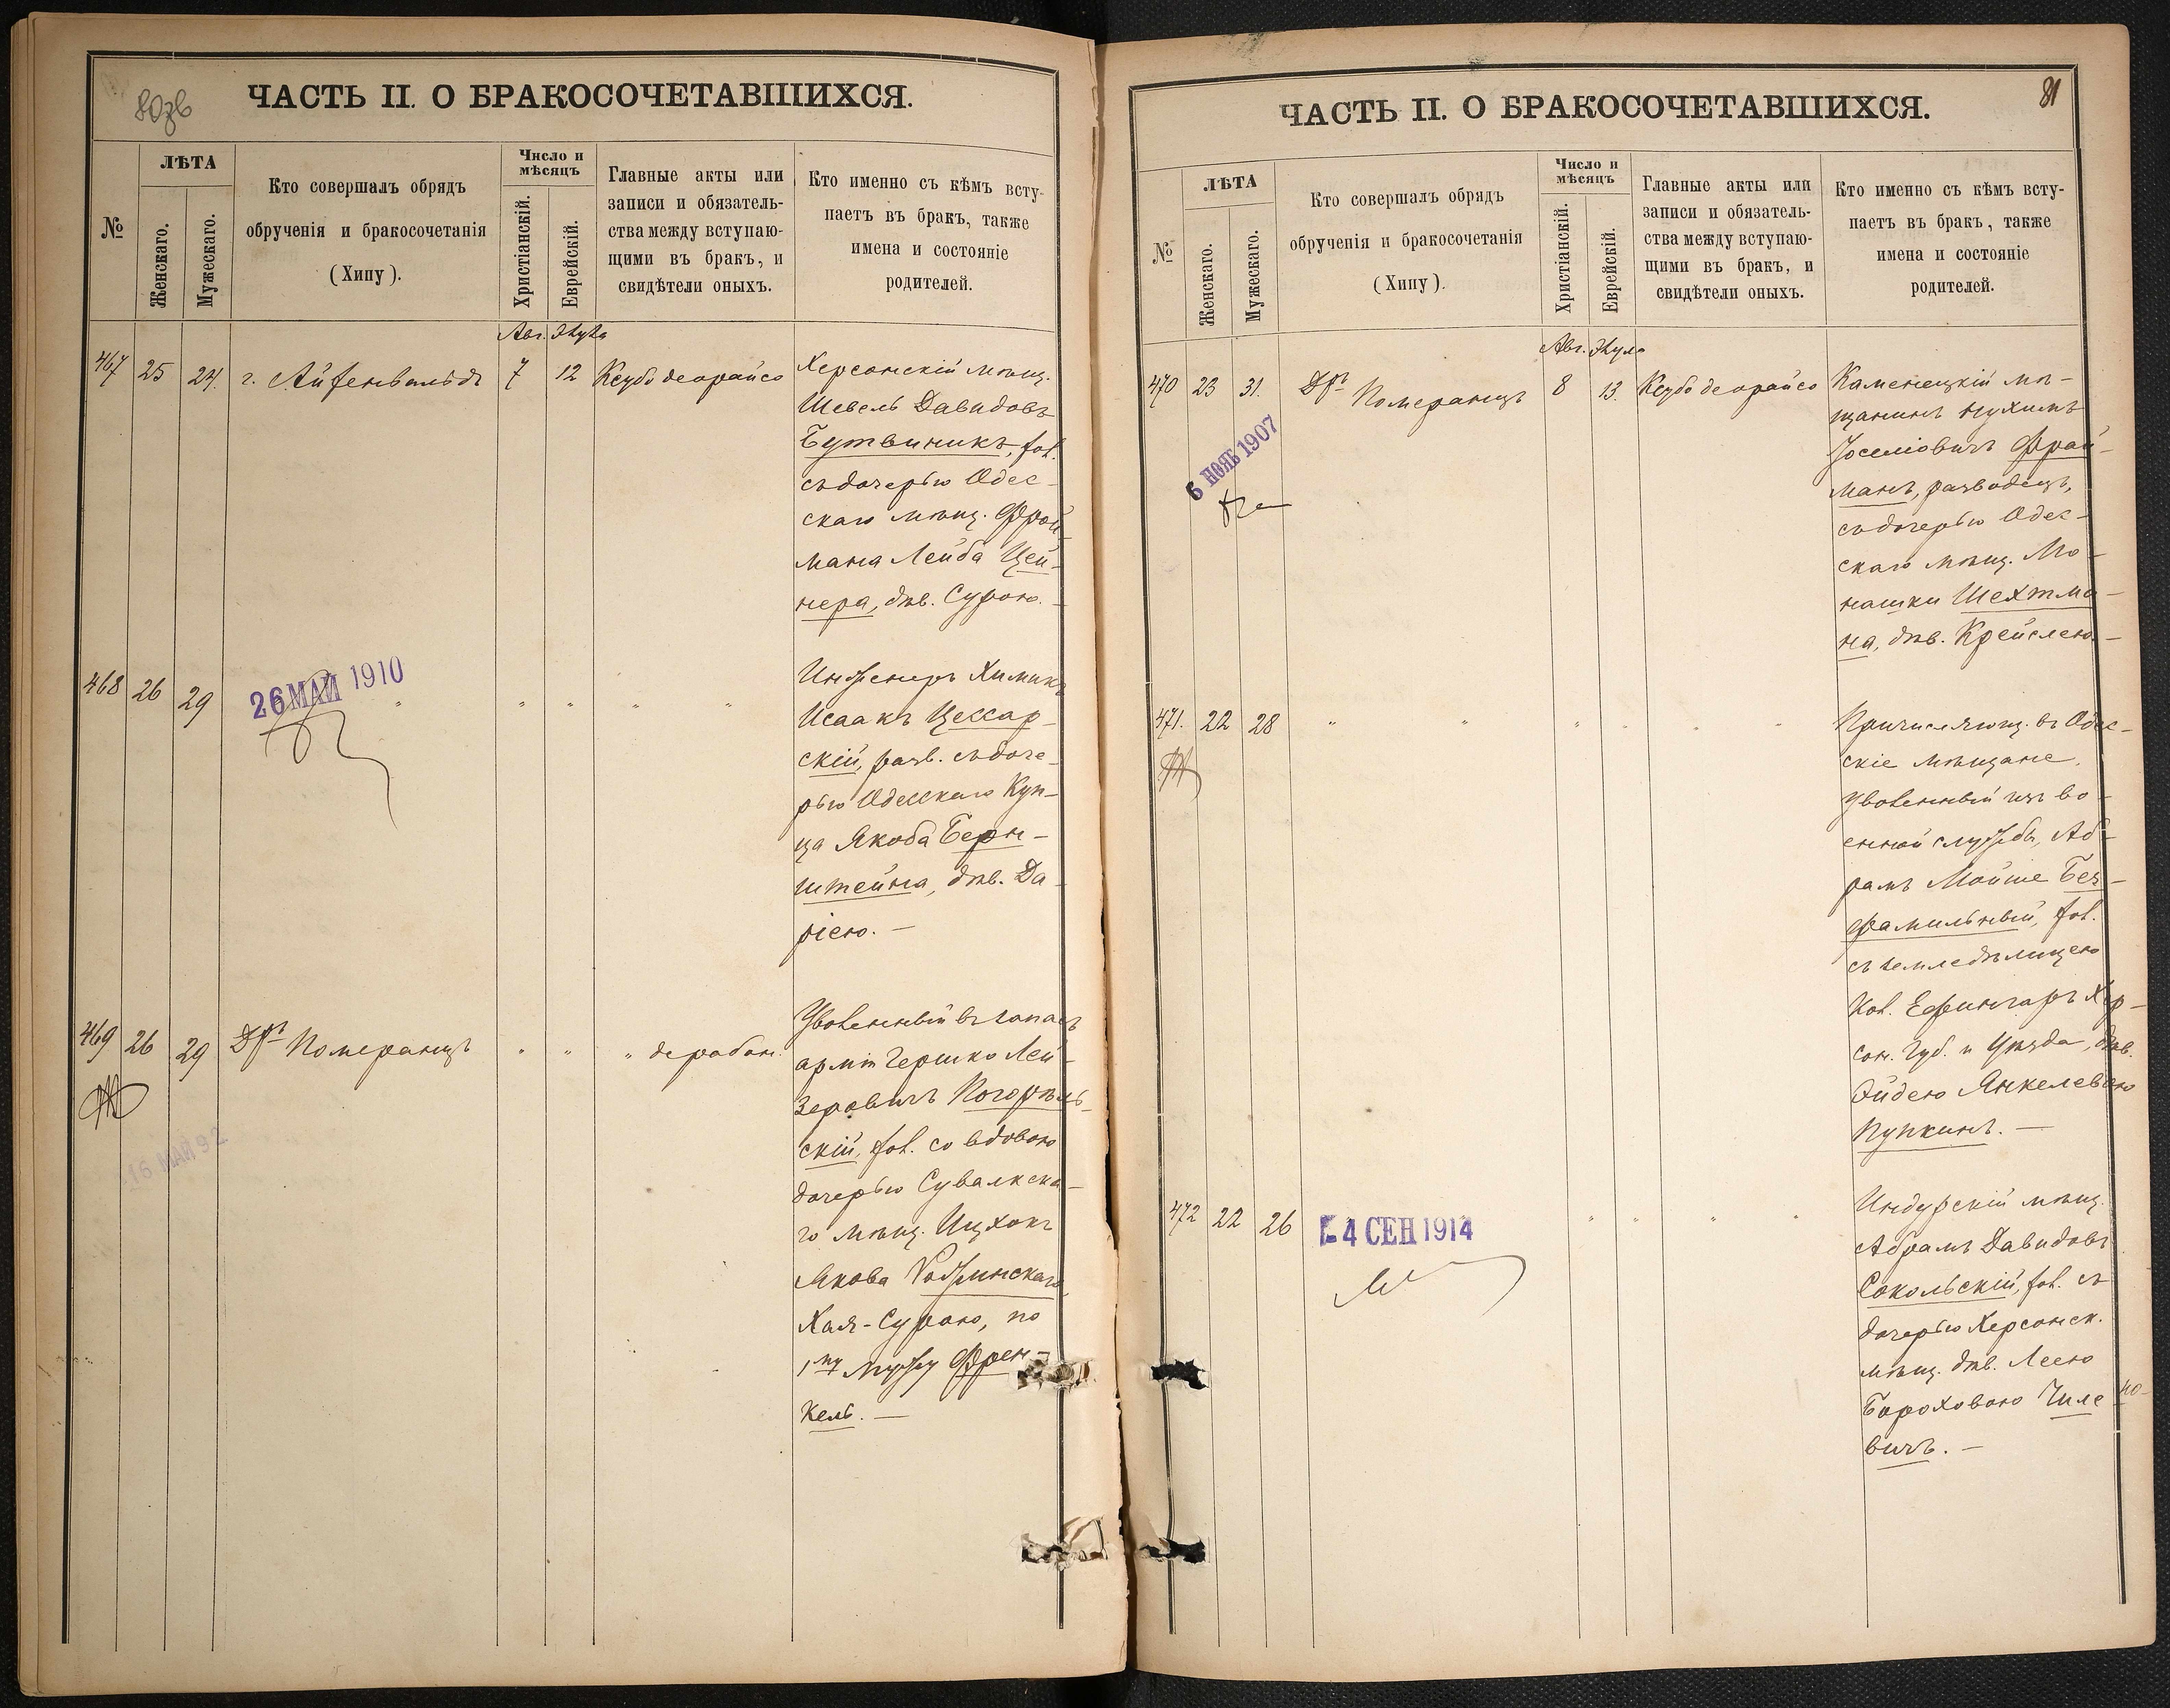 80об
ЧАСТЬ II. О БРАКОСОЧЕТАВШИХСЯ.
№
ЛѢТА
Женскаго.
Мужескаго.
Кто совершалъ обрядъ
обрученія и бракосочетанія
(Хипу).
Число и
мѣсяцъ
Христіанскій.
Еврейскій.
Главные акты или
записи и обязатель-
ства между вступаю-
щими въ бракъ, и
свидѣтели оныхъ.
Кто именно съ кѣмъ всту-
паетъ въ бракъ, также
имена и состояніе
родителей.
Авг. Элула
467 25 24. г. Айзенвальдъ 7 12 Ксубо деорайсо
Херсонскій мѣщ.
Шевель Давидовъ
Бутвиникъ, хол.
съ дочерью Одес-
скаго мѣщ. Фрой-
мана Лейба Цей-
нера, дѣв. Сурою.-
468 26 29 " " " " "
26 МАЙ 1910
Инженеръ Химикъ
Исаакъ Цессар-
скій, разв. съ доче-
рью Одесскаго Куп-
ца Якова Берн-
штейна, дѣв. Да-
ріею. -
469 26 29 Дръ Померанцъ " " " дерабон.
16 МАЙ 92
Уволенный въ запасъ
арміи Гершко Лей-
зеровичъ Погорѣль-
скій, хол. со вдовою
дочерью Сувалкска-
го мѣщ. Ицхокъ
Якова
Хая-Сурою, по
1му мужу Френ-
кель. -
81
ЧАСТЬ II. О БРАКОСОЧЕТАВШИХСЯ.
№
ЛѢТА
Женскаго.
Мужескаго.
Кто совершалъ обрядъ
обрученія и бракосочетанія
(Хипу).
Число и
мѣсяцъ
Христіанскій.
Еврейскій.
Главные акты или
записи и обязатель-
ства между вступаю-
щими въ бракъ, и
свидѣтели оныхъ.
Кто именно съ кѣмъ всту-
паетъ въ бракъ, также
имена и состояніе
родителей.
Авг. Элула
470 23 31. Дръ Померанцъ 8 13. Ксубо деорайсо
6 НОЯБ 1907
Каменецкій мѣ-
щанинъ Нухимъ
Іосіовичъ Фрай-
манъ, разводецъ,
съ дочерью Одес-
скаго мѣщ. Мо-
нашки Шехтма-
на, дѣв. Крейслею.-
471. 22 28 " " " " " "
Причисляющ. въ Одес-
скіе мѣщане,
уволенный изъ во-
енной службы, Аб-
рамъ Мойше Без-
фамильный, хол.
съ земледѣлицею
Кол. Ефингаръ Хер-
сон. Губ. и Уѣзда, дѣв.
Эйдею Янкелевою
Пупкинъ. -
472 22 26 " " " "
4 СЕН 1914
Индурскій мѣщ.
Абрамъ Давидовъ
Сокольскій, хол. съ
дочерью Херсонск.
мѣщ. дѣв. Леею
Бороховою Чиле-
вичъ. -